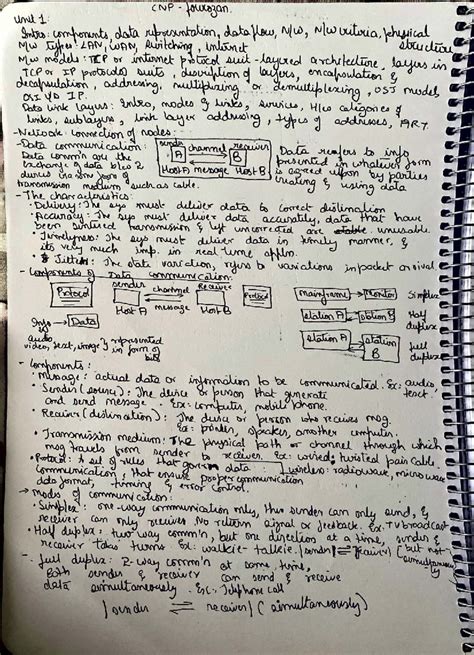 CNP - fourozan.
Unit 1:
Intro: components, data representation, data flow, N/w, N/w criteria, physical structure
N/w types: LAN, WAN, Switching, internet
N/w models: TCP or internet protocol suit - layered architecture, layers in
TCP or IP protocol suits, description of layers, encapsulation &
decapsulation, addressing, multiplexing or demultiplexing, OSI model,
OSI vs IP.
Data link layers: Intro, nodes & links, services, categories of
links, sublayers, link layer addressing, types of addresses, ARP.
- Network: connection of nodes:
- Data communication:
Data comm'n are the
exchange of data b/w 2
devices via some form of
transmission medium such as cable.
sender channel receiver
A B
Host A message Host B
Data refers to info
presented in whatever form
is agreed upon by parties
creating & using data
- The characteristics:
• Delivery: The sys must deliver data to correct distination
• Accuracy: The sys must deliver data accurately, data that have
been altered transmission & left uncorrected are unusable.
• Timelyness: The sys must deliver data in timely manner, &
its very much imp. in real time applns.
• Jitter: The data variation, refers to variations in packet arrival
- Components of Data communication:
Protocol sender channel Receiver Protocol
Host A message Host B
Info → Data
audio, video, text, image represented in form of bits
mainframe → Monitor Simplex
station A station B Half duplex
station A station B full duplex
- Components:
• Message: actual data or information to be communicated. Ex: audio, text.
• Sender (source): The device or person that generate
and send message. Ex: computer, mobile phone.
• Receiver (distination): The device or person who receives msg.
Ex: printer, speaker, another computer.
• Transmission medium: The physical path or channel through which
msg travels from sender to receiver. Ex: wired: twisted pair cable.
wireless: radiowave, microwave
• Protocol: A set of rules that govern data
communication, that ensure proper communication
data format, timing & error control.
→ modes of communication:
• Simplex: one-way communication only, thus sender can only send, &
receiver can only receives. No return signal or feedback. Ex: TV broadcast
• Half duplex: two way comm'n, but one direction at a time, sender &
receiver takes turns. Ex: walkie-talkie. |sender| ⇌ |receiver| (but not simultaneously)
- full duplex: 2-way comm'n at same time,
Both sender & receiver can send & receive
data simultaneously. Ex: Telephone call
|sender ⇌ receiver| (simultaneously)